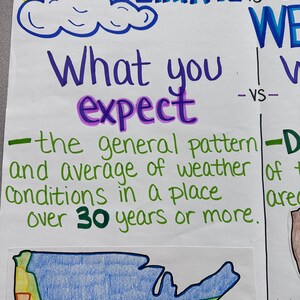 WE
What you
expect
-VS-
W
—the general pattern
and average of weather
conditions in a place
over 30 years or more.
—D
of t
area